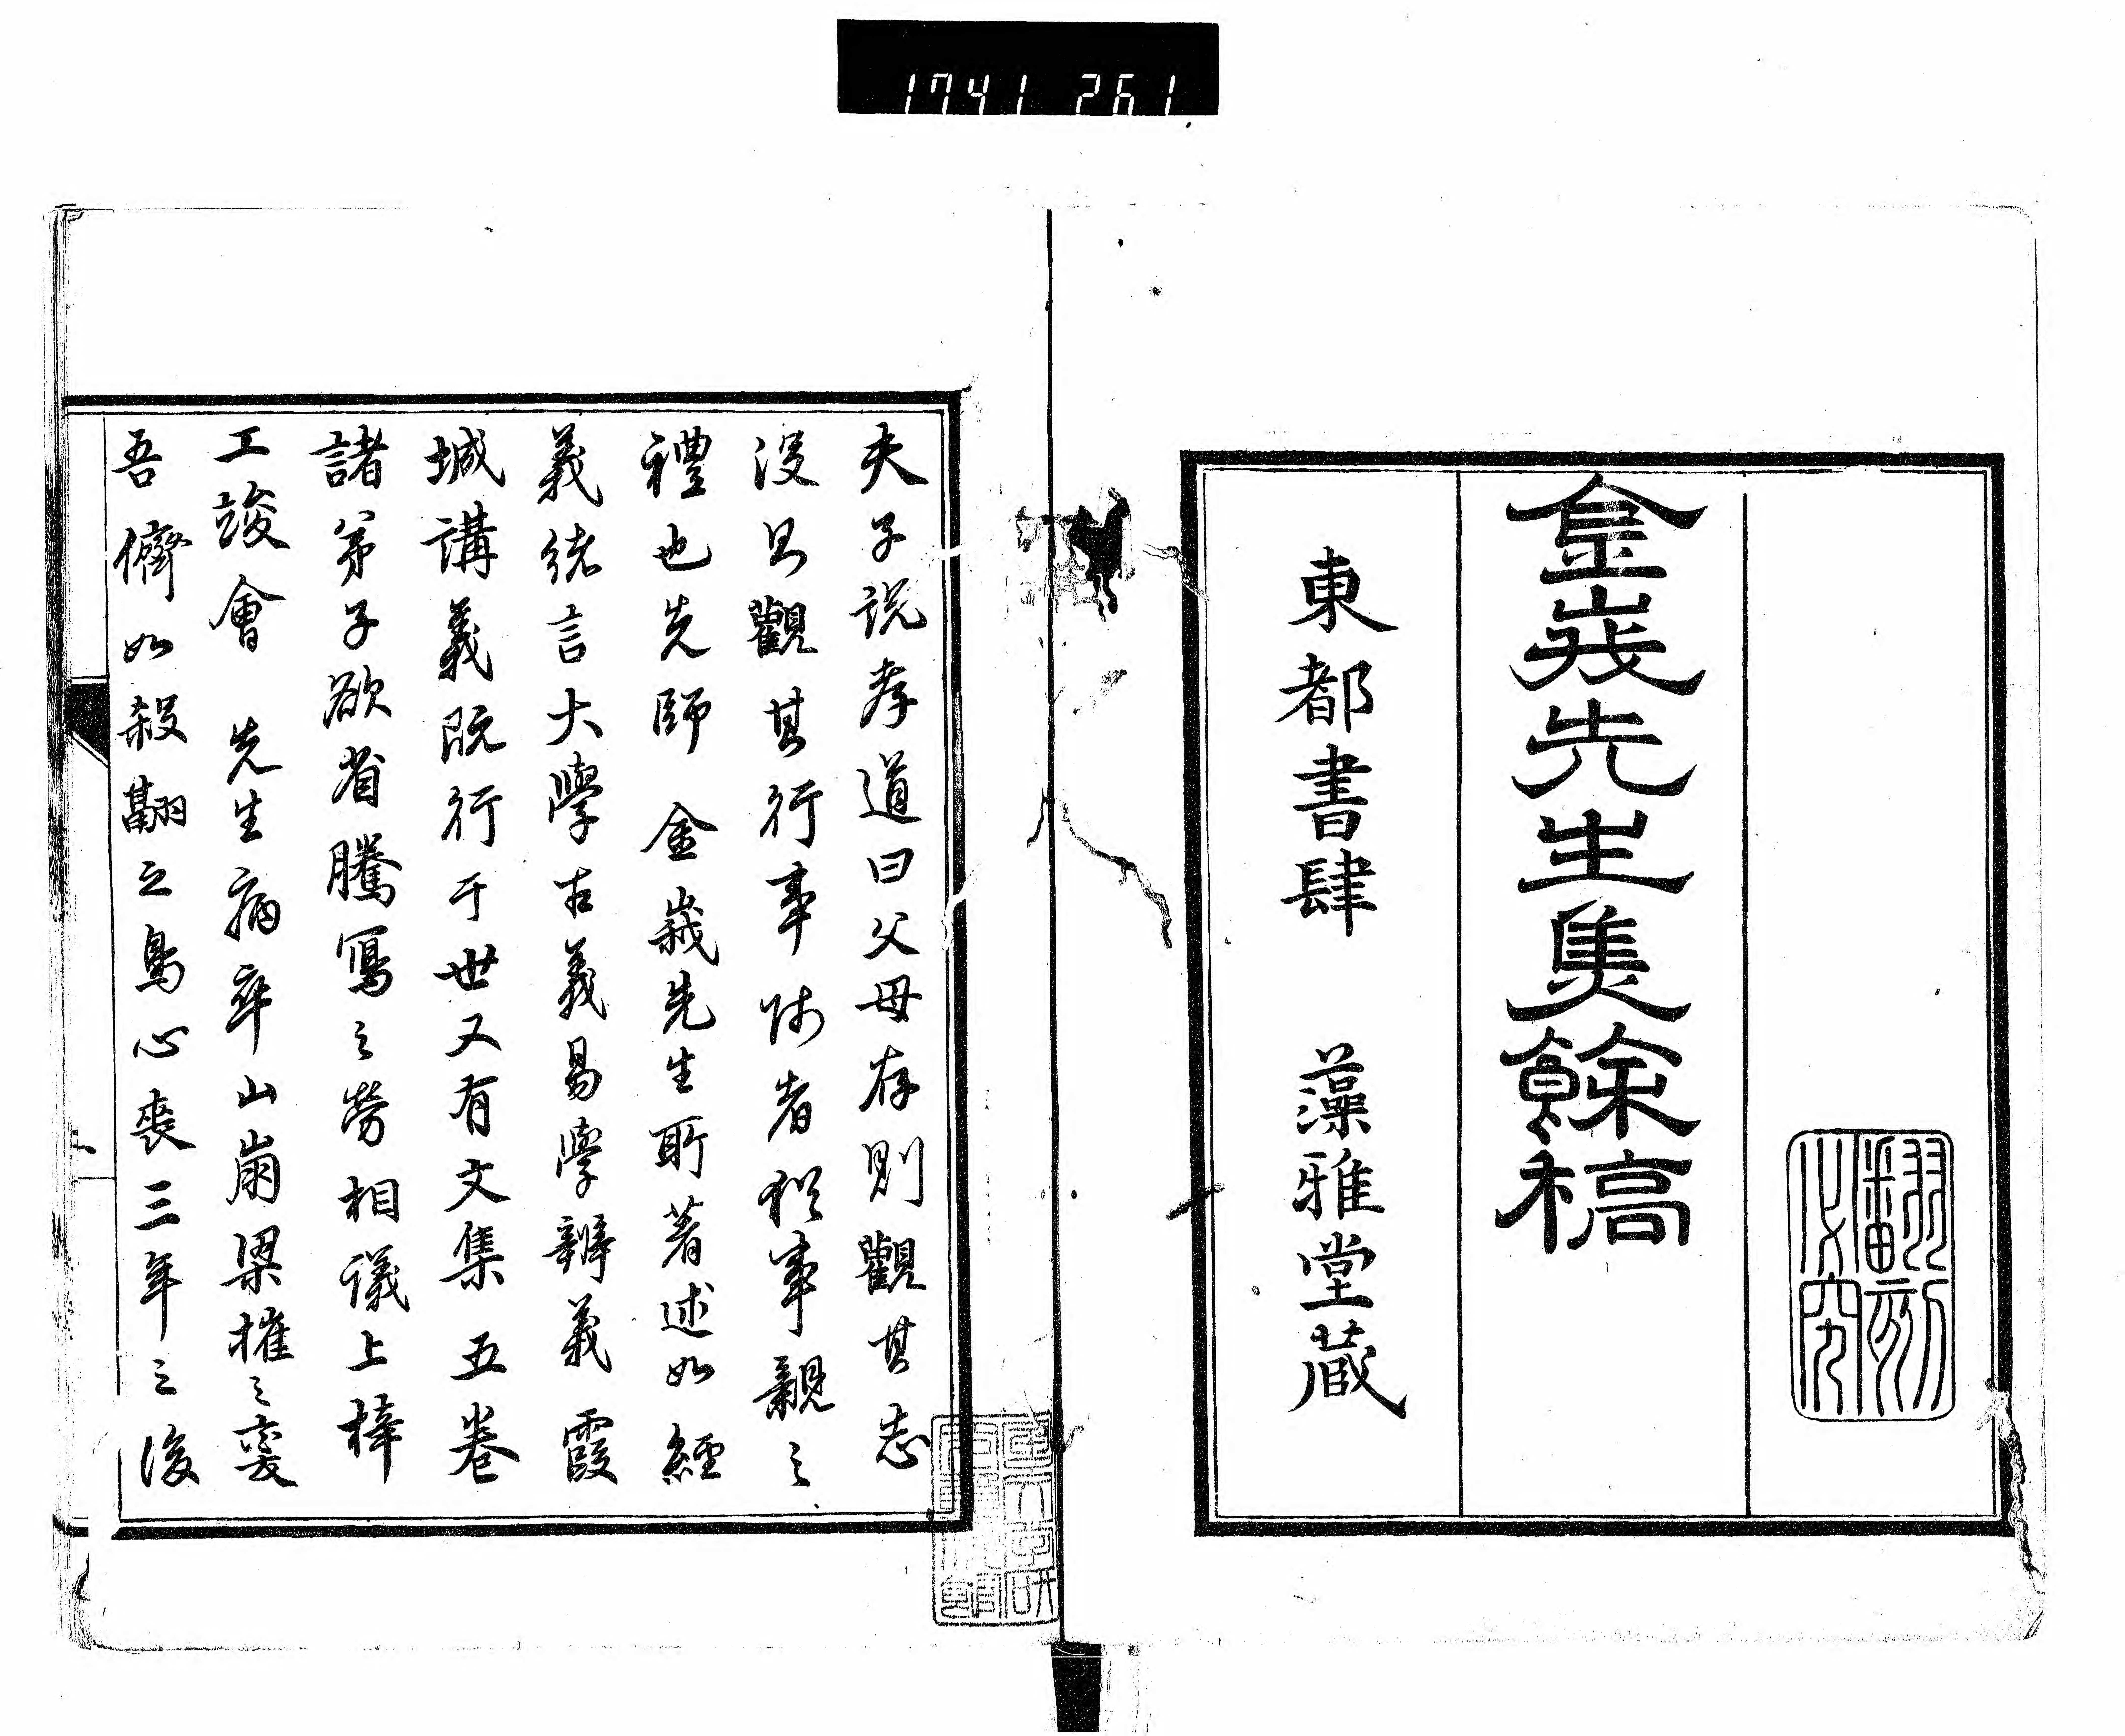 1741 261
翻刻必究
金峩先生集餘稿
東都書肆 藻雅堂蔵
夫子説孝道曰父母存則觀其志
沒則觀其行事師者猶事親之
禮也先師 金峩先生所著述如經
義緒言大學古義易學辨義霞
城講義既行于世又有文集五卷
諸弟子欲省騰寫之勞相議上梓
工竣會 先生病卒山崩梁摧之変
吾儕如殺翮之鳥心喪三年之後